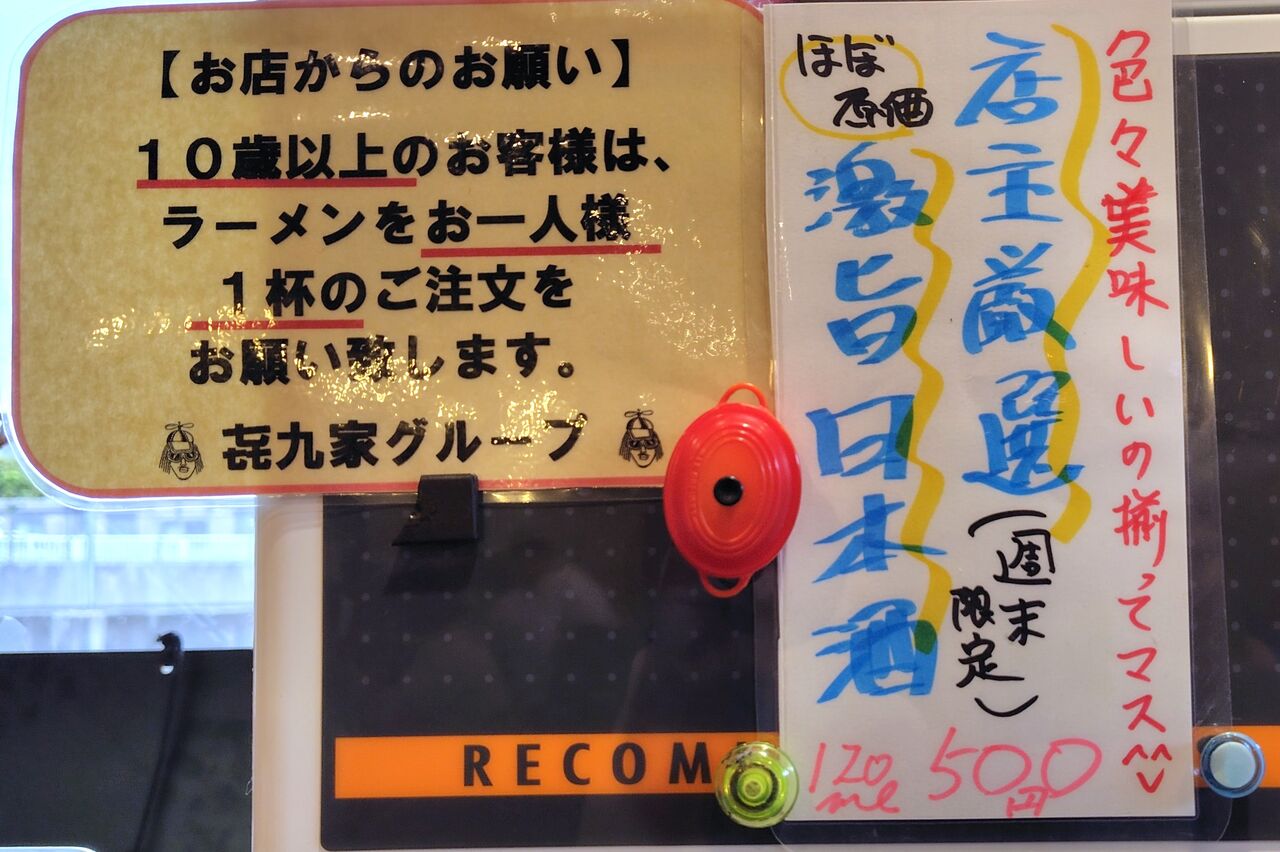 【お店からのお願い】
10歳以上のお客様は、
ラーメンをお一人様
1杯のご注文を
お願い致します。
㐂九家グループ
色々美味しいの揃ってマス^^
店主厳選(週末限定)
ほぼ原価
激旨日本酒
120ml 500円
RECOM